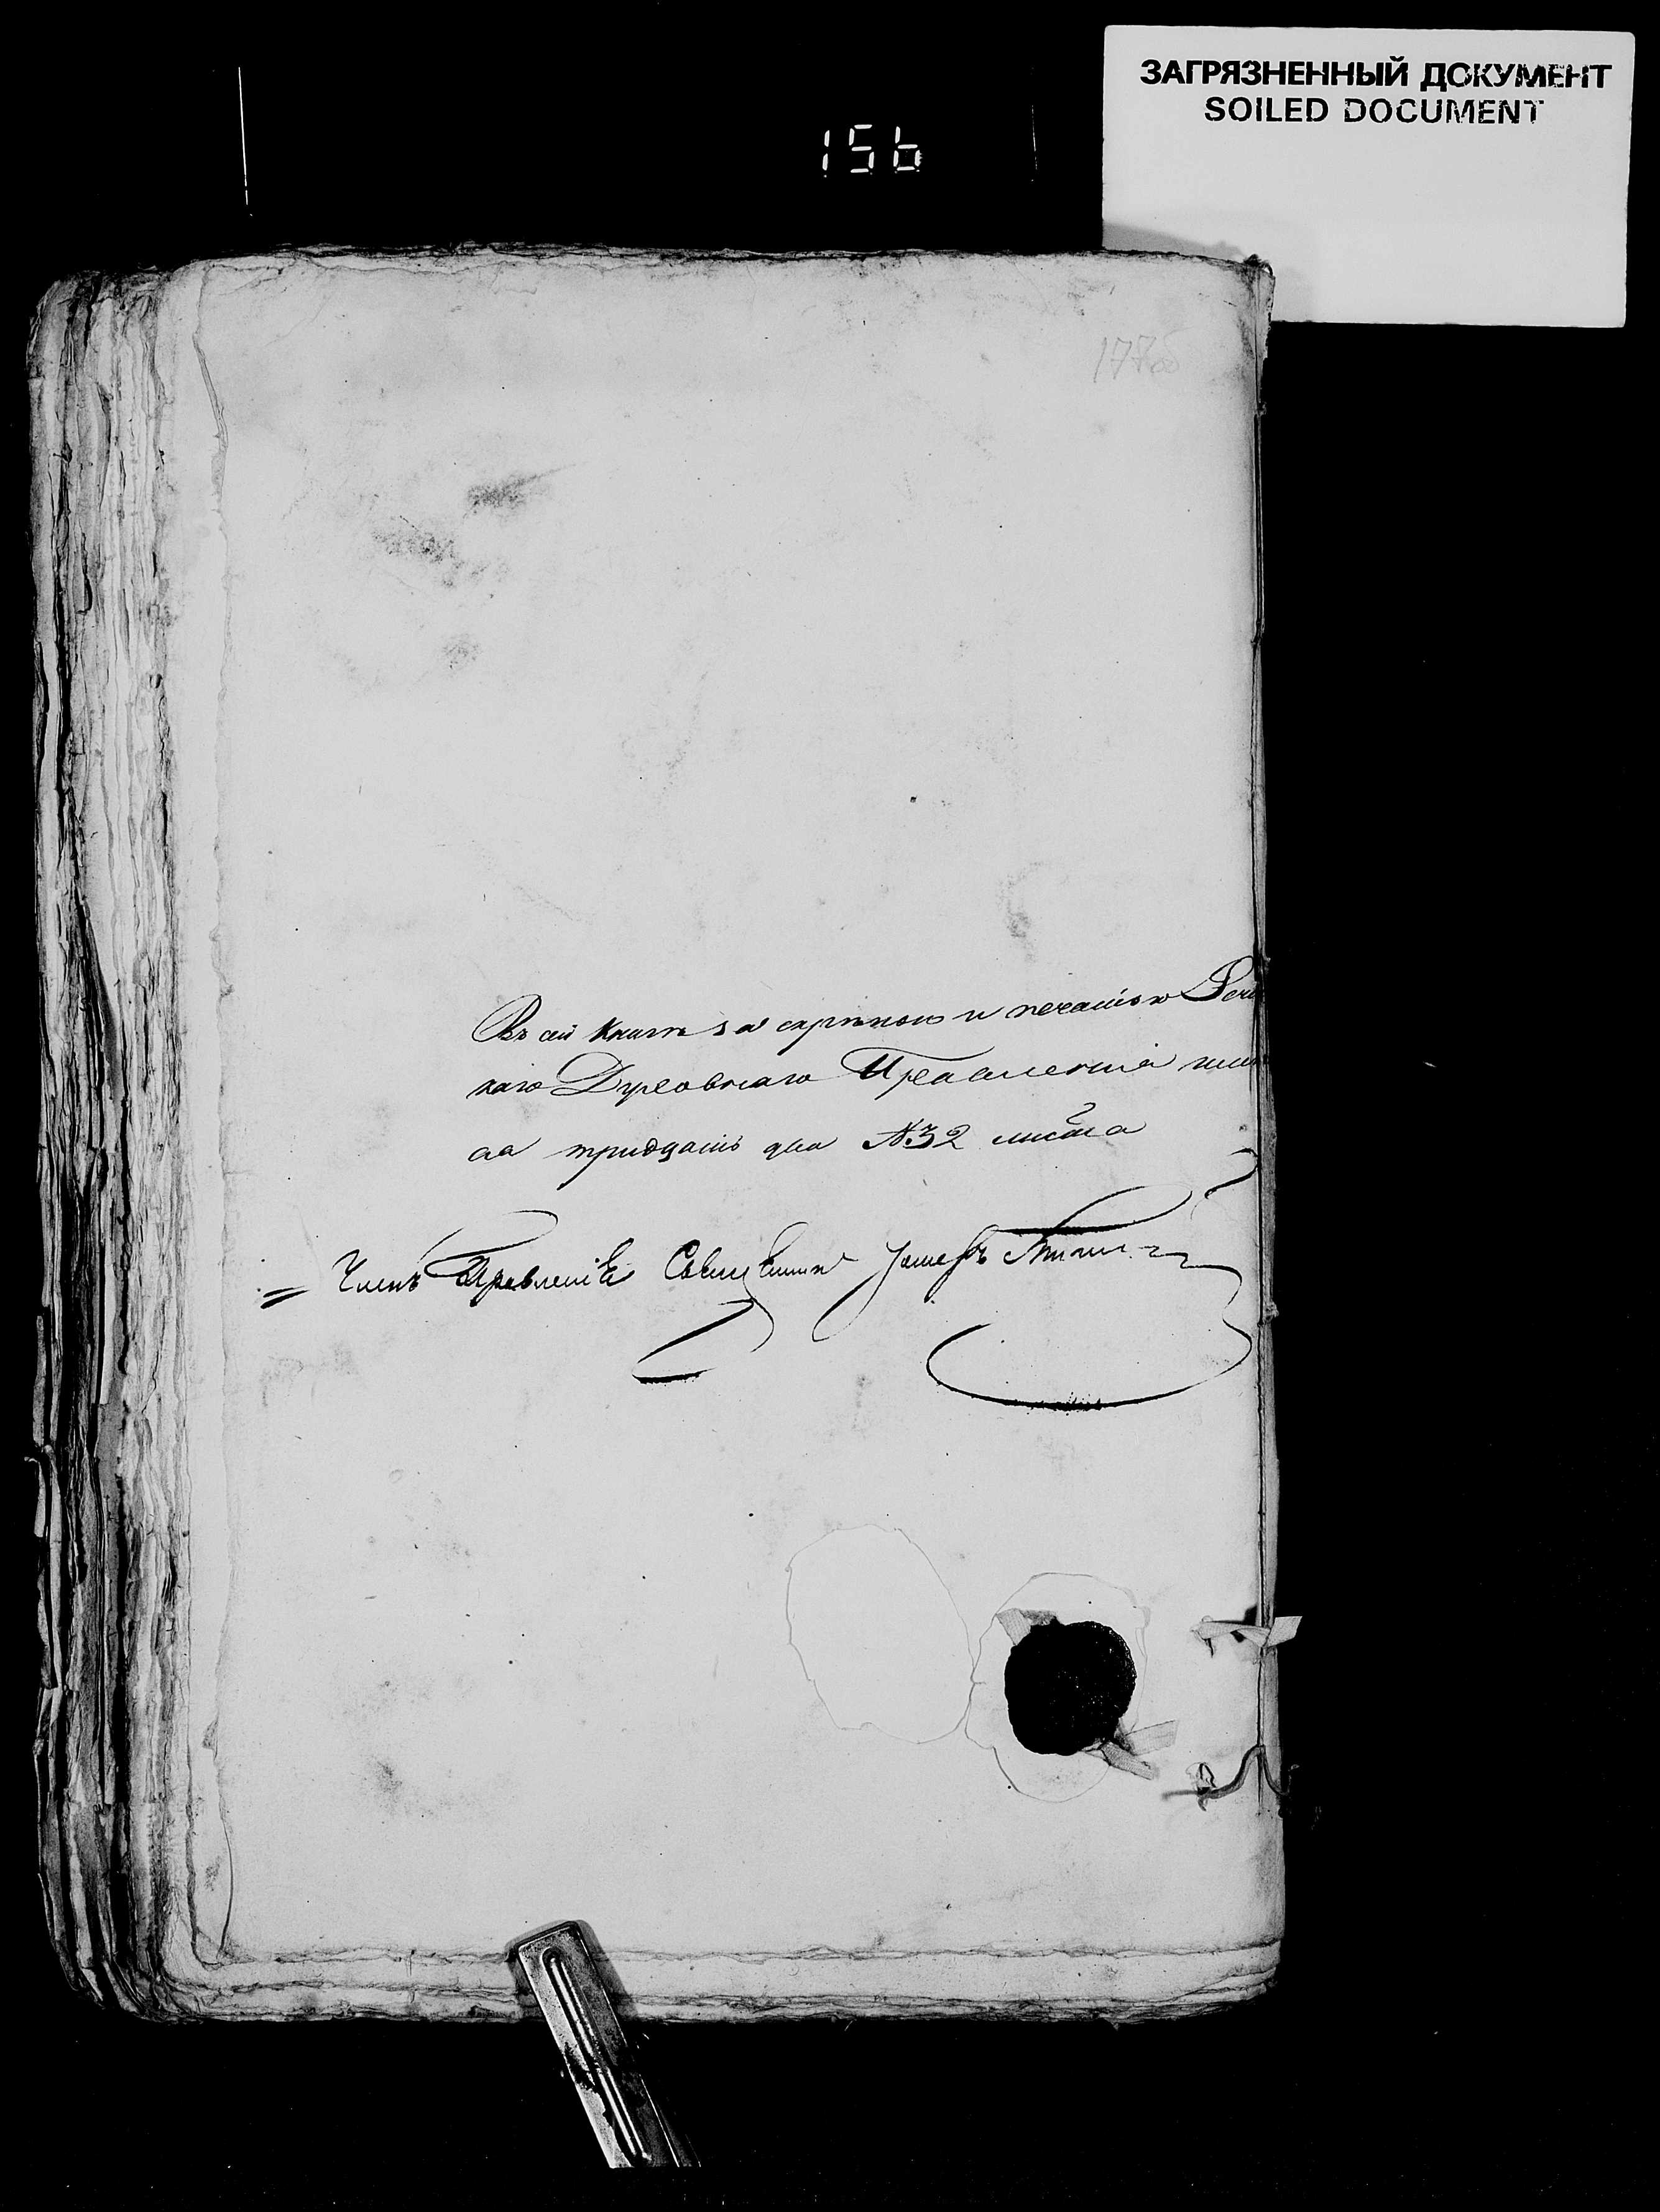 ЗАГРЯЗНЕННЫЙ ДОКУМЕНТ
SOILED DOCUMENT
156
177об
Въ сей книгѣ за скрѣпою и печатью
каго Духовнаго Правленія
аа тридцать два №32 листа
Членъ Правленія Священникъ